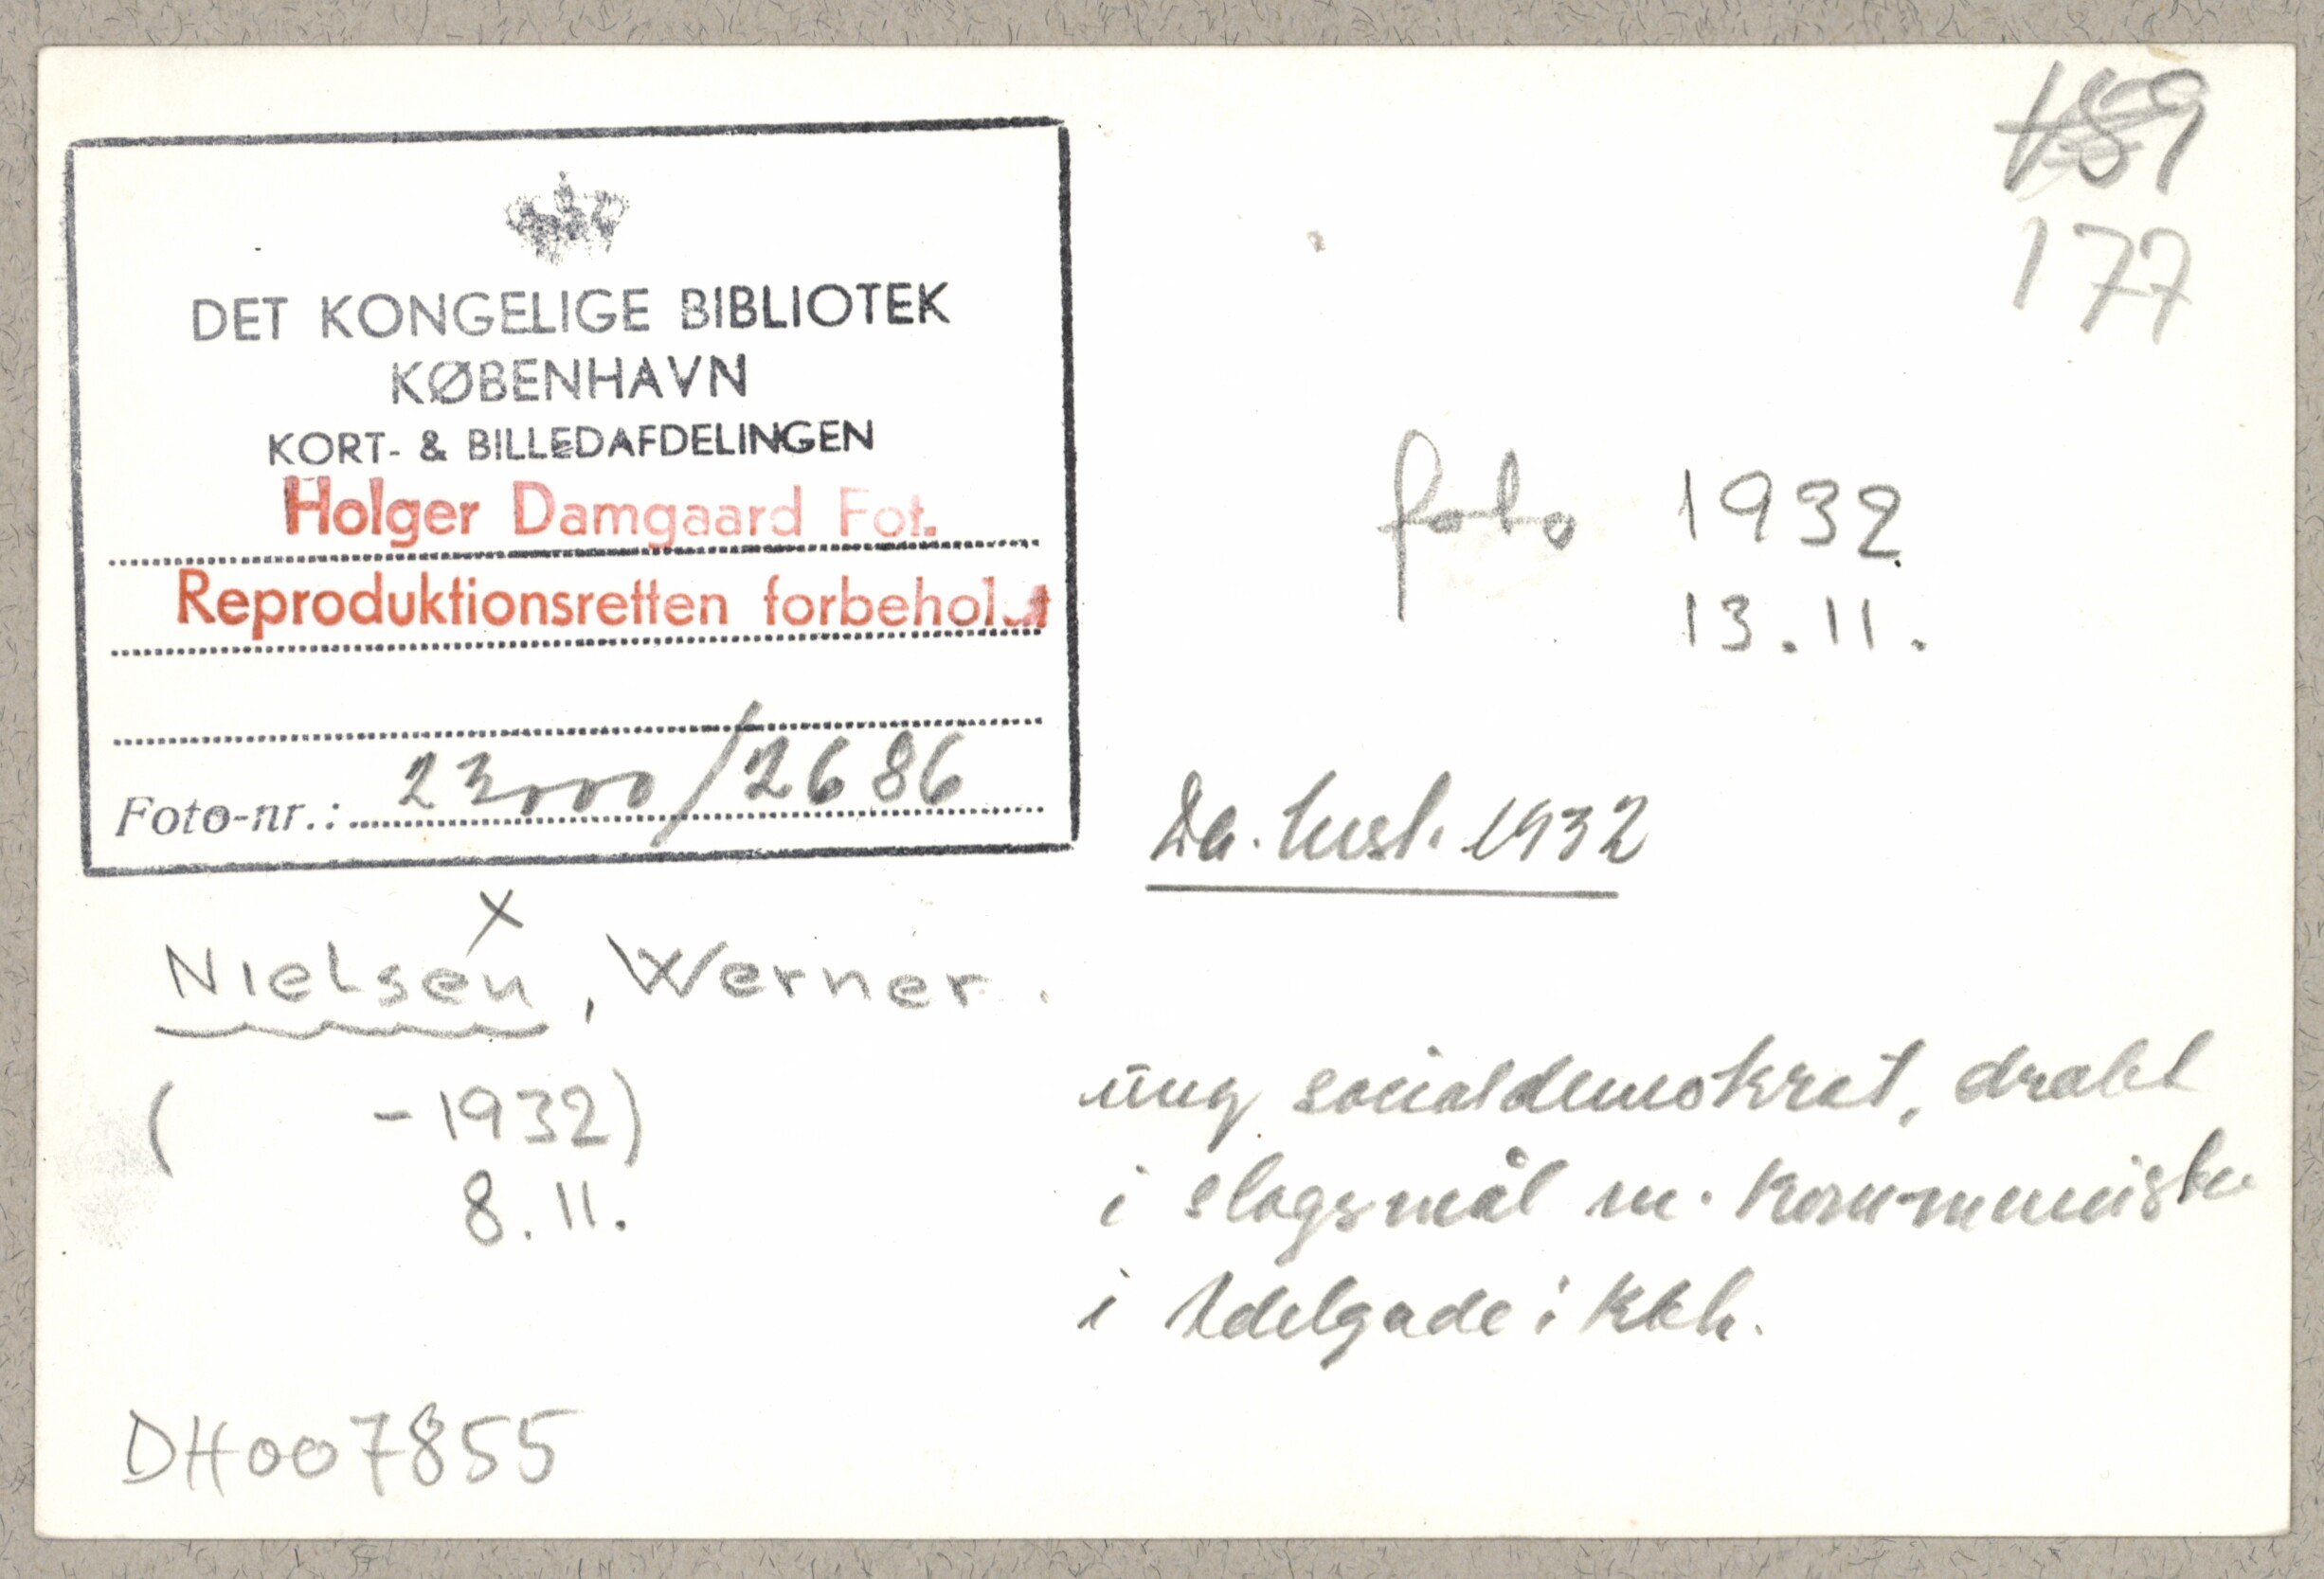 189
177
DET KONGELIGE BIBLIOTEK
KØBENHAVN
KORT- & BILLEDAFDELINGEN
Holger Damgaard Fot.
Reproduktionsretten forbeholdt
Foto-nr.: 23000/2686
foto 1932
13.11.
Da. hist. 1932
x
Nielsen, Werner.
( -1932)
8.11.
ung socialdemokrat, dræbt
i slagsmål m. kommunister
i Adelgade i Kbh.
DH007855